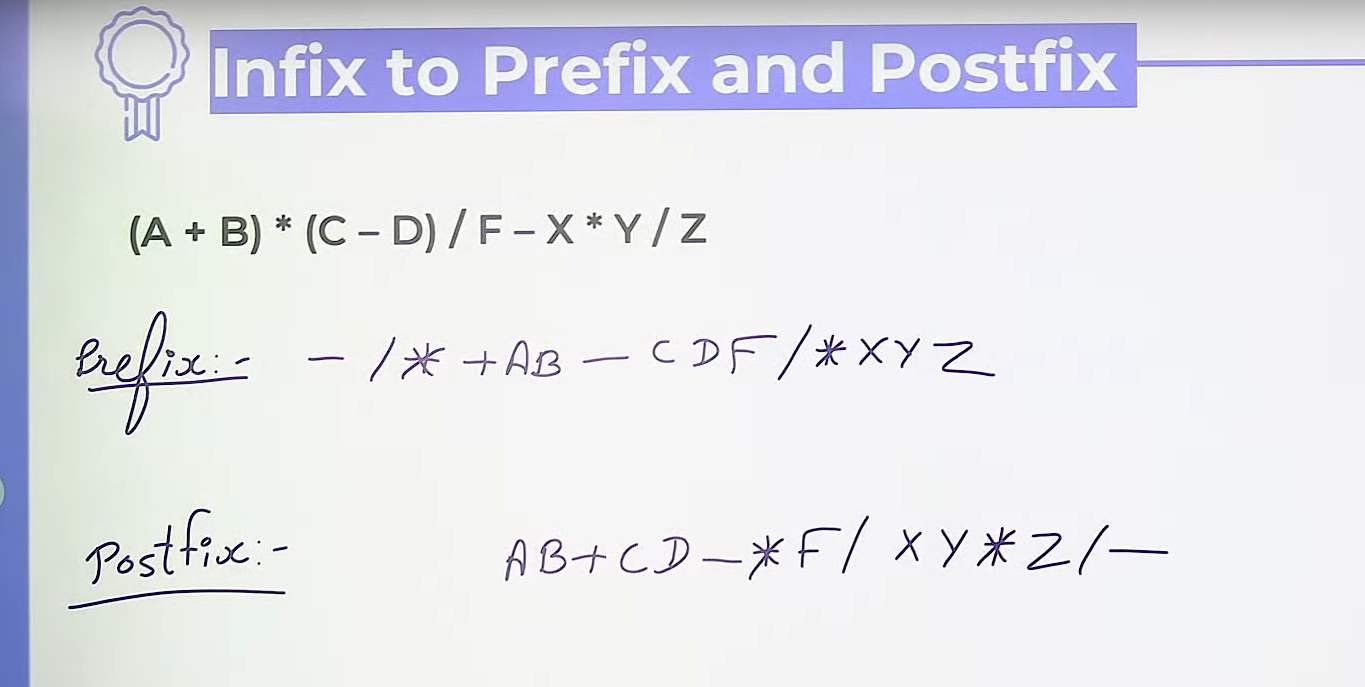 Infix to Prefix and Postfix
(A + B) * (C – D) / F – X * Y / Z
Prefix:- – / * + A B – C D F / * X Y Z
Postfix:- A B + C D – * F / X Y * Z / –